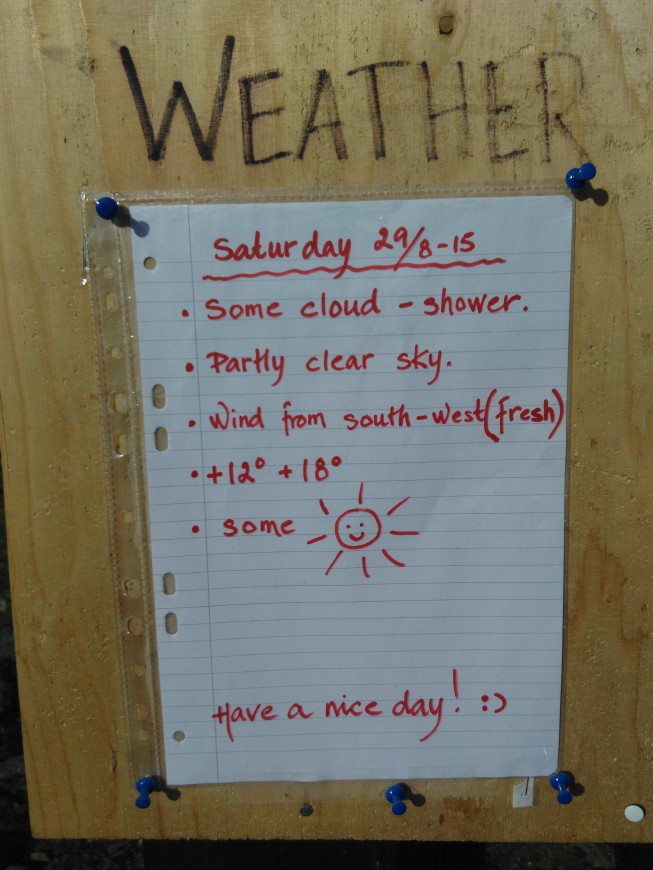 WEATHER
Saturday 29/8-15
• Some cloud - shower.
• Partly clear sky.
• Wind from south-west (fresh)
• +12° +18°
• some
Have a nice day! :)